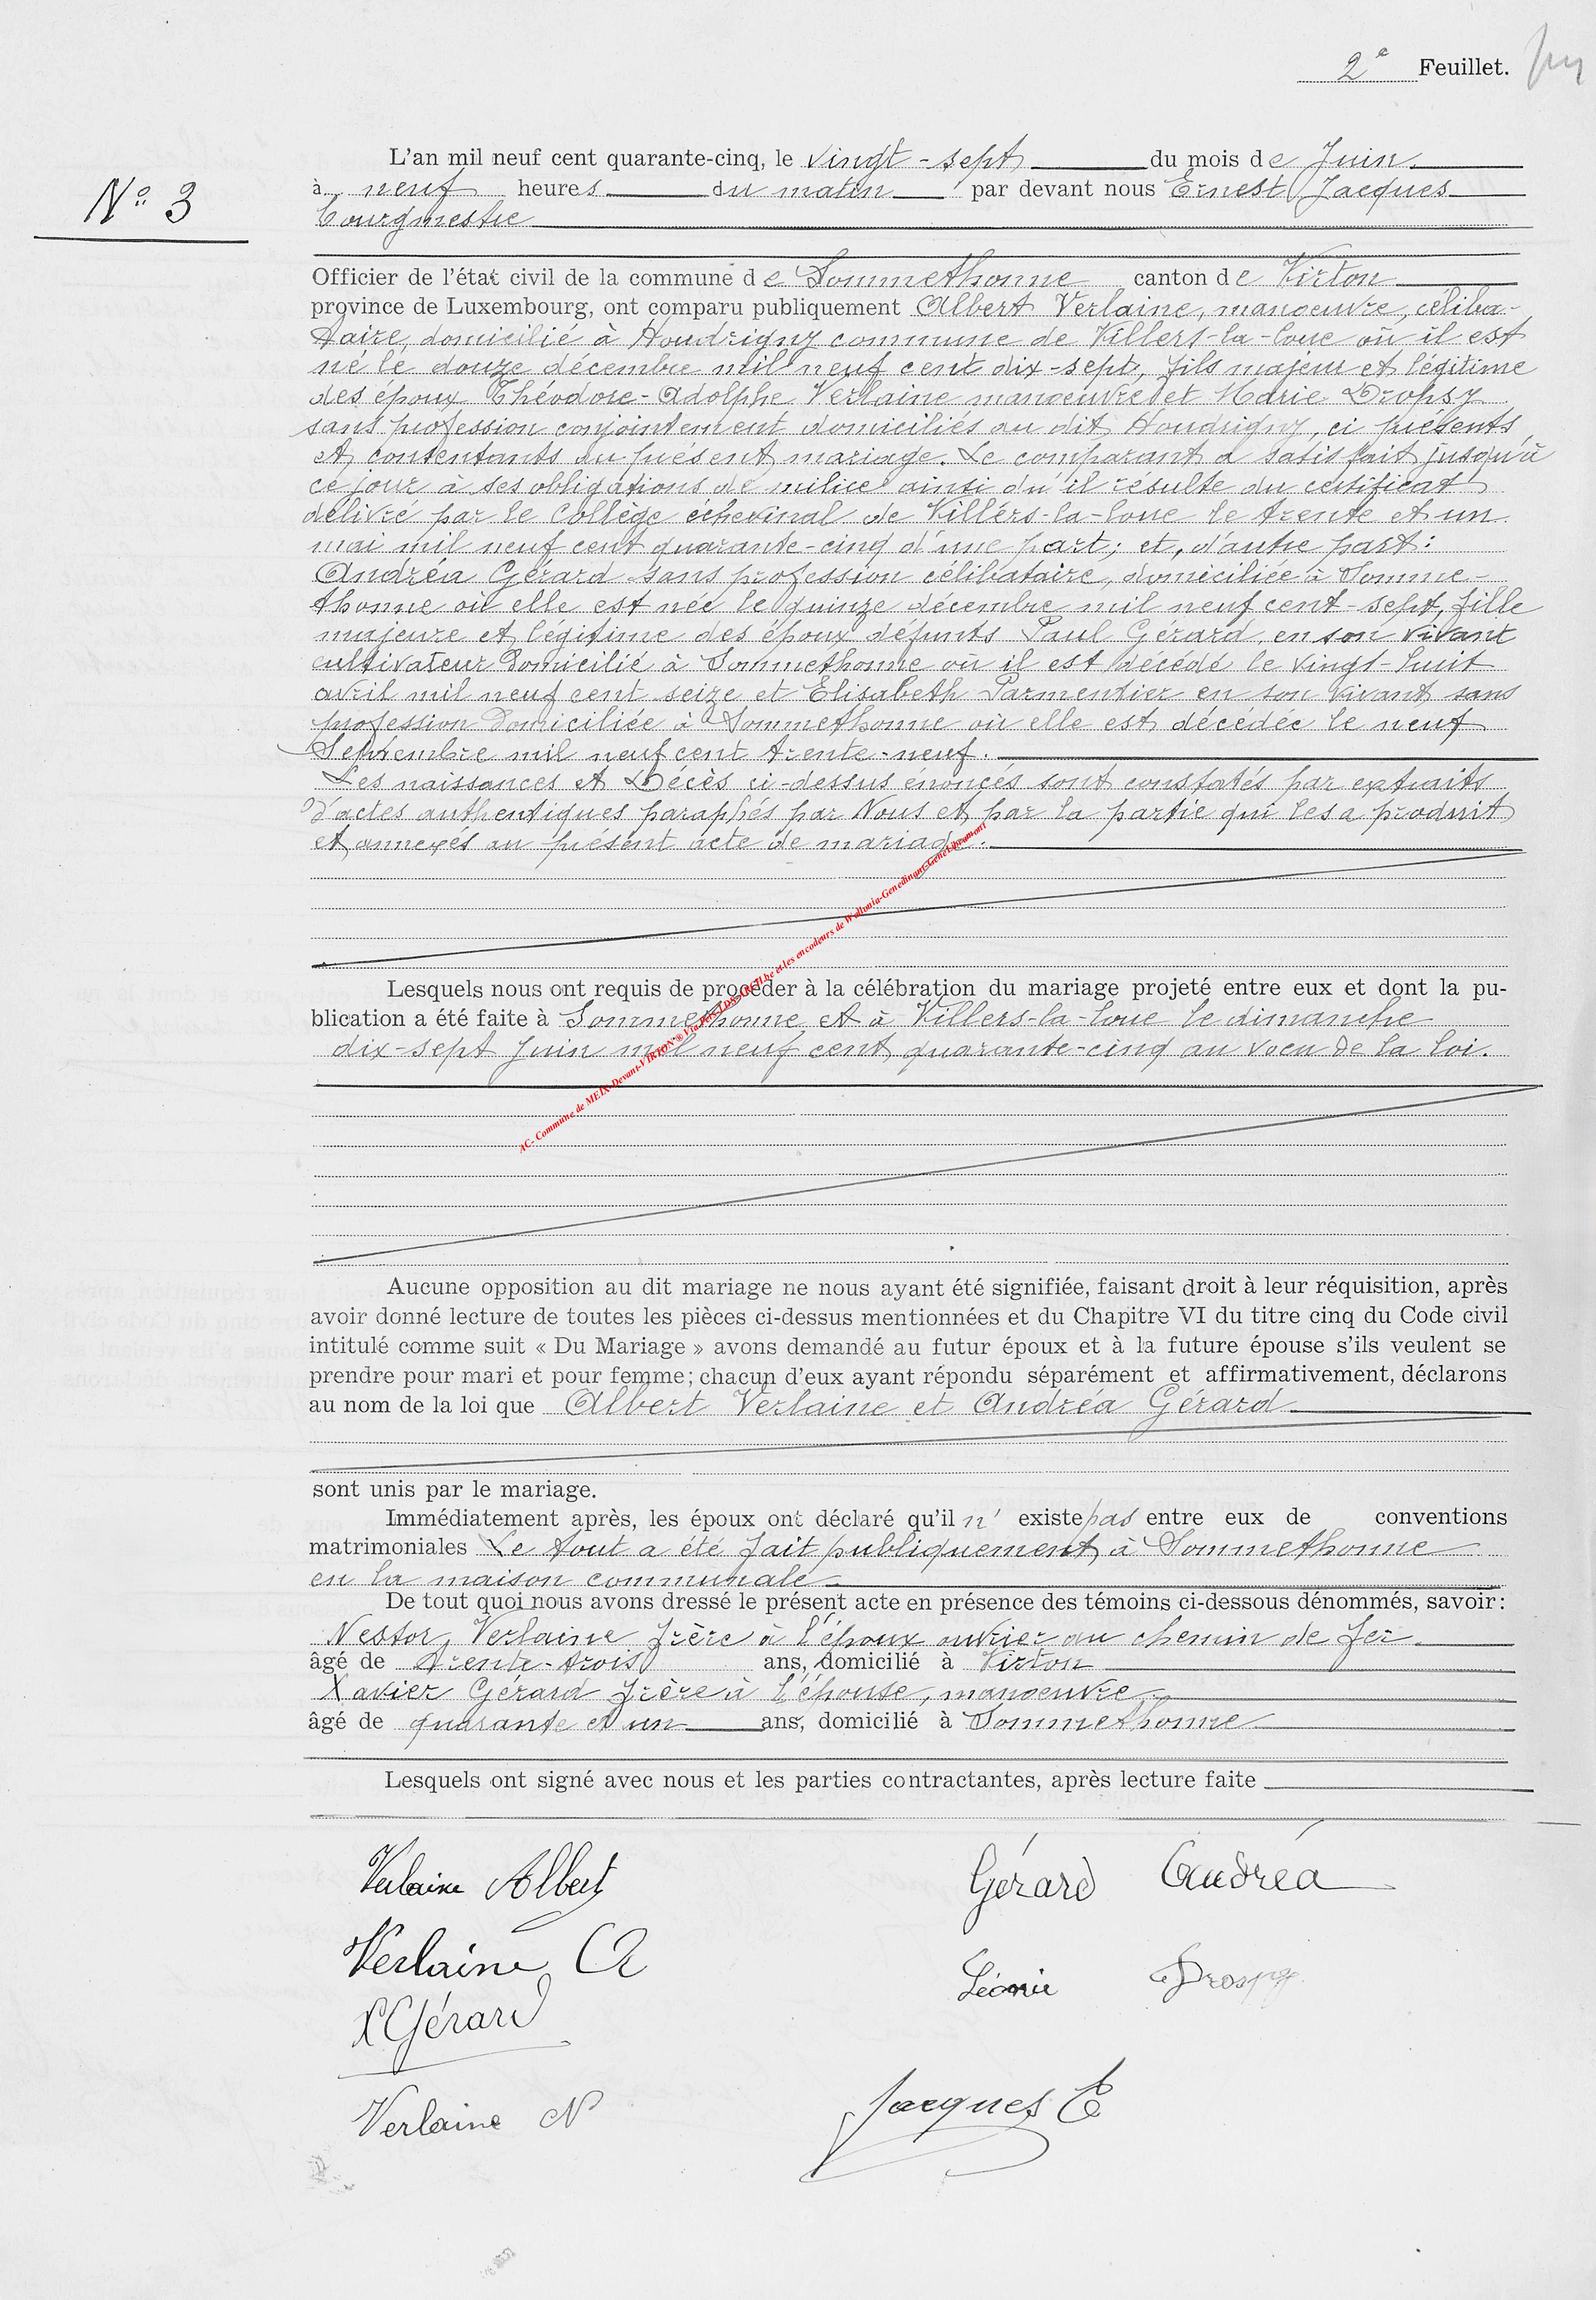 2e Feuillet.
L'an mil neuf cent quarante-cinq, le vingt-sept du mois de Juin
N° 3
à neuf heures du matin par devant nous Ernest Jacques
bourgmestre
Officier de l'état civil de la commune de Sommethonne canton de Virton
province de Luxembourg, ont comparu publiquement Albert Verlaine, manoeuvre, céliba-
taire, domicilié à Houdrigny commune de Villers-la-loue où il est
né le douze décembre mil neuf cent dix-sept, fils majeur et légitime
des époux Théodore-Adolphe Verlaine manoeuvre et Marie Dropsy
sans profession conjointement domiciliés au dit Houdrigny, ci présents
et consentants au présent mariage. Le comparant a satisfait jusqu'à
ce jour à ses obligations de milice ainsi qu'il résulte du certificat
délivré par le Collège échevinal de Villers-la-loue le trente et un
mai mil neuf cent quarante-cinq d'une part; et, d'autre part:
Andréa Gérard sans profession célibataire, domiciliée à Somme-
thonne où elle est née le quinze décembre mil neuf cent-sept, fille
majeure et légitime des époux défunts Paul Gérard, en son vivant
cultivateur domicilié à Sommethonne où il est décédé le vingt-huit
avril mil neuf cent seize et Elisabeth Parmentier en son vivant sans
profession domiciliée à Sommethonne où elle est décédée le neuf
Septembre mil neuf cent trente-neuf.
Les naissances et Décès ci-dessus énoncés sont constatés par extraits
d'actes authentiques paraphés par Nous et par la partie qui les a produit
et annexés au présent acte de mariage.
AC- Commune de MEIX-Devant-VIRTON ® Via Pers-LDS-ARCH.be et les encodeurs de Wallonia-Genedinant-GeneLibramont
Lesquels nous ont requis de procéder à la célébration du mariage projeté entre eux et dont la pu-
blication a été faite à Sommethonne et à Villers-la-loue le dimanche
dix-sept juin mil neuf cent quarante-cinq au voeu de la loi.
Aucune opposition au dit mariage ne nous ayant été signifiée, faisant droit à leur réquisition, après
avoir donné lecture de toutes les pièces ci-dessus mentionnées et du Chapitre VI du titre cinq du Code civil
intitulé comme suit « Du Mariage » avons demandé au futur époux et à la future épouse s'ils veulent se
prendre pour mari et pour femme; chacun d'eux ayant répondu séparément et affirmativement, déclarons
au nom de la loi que Albert Verlaine et Andréa Gérard
sont unis par le mariage.
Immédiatement après, les époux ont déclaré qu'il n' existe pas entre eux de conventions
matrimoniales Le tout a été fait publiquement à Sommethonne
en la maison communale
De tout quoi nous avons dressé le présent acte en présence des témoins ci-dessous dénommés, savoir:
Nestor Verlaine frère à l'époux ouvrier au chemin de fer
âgé de trente-trois ans, domicilié à Virton
Xavier Gérard frère à l'épouse, manoeuvre
âgé de quarante et un ans, domicilié à Sommethonne
Lesquels ont signé avec nous et les parties contractantes, après lecture faite
Verlaine Albert Gérard Andréa
Verlaine A Léonie Dropsy
X Gérard
Verlaine N Jacques E